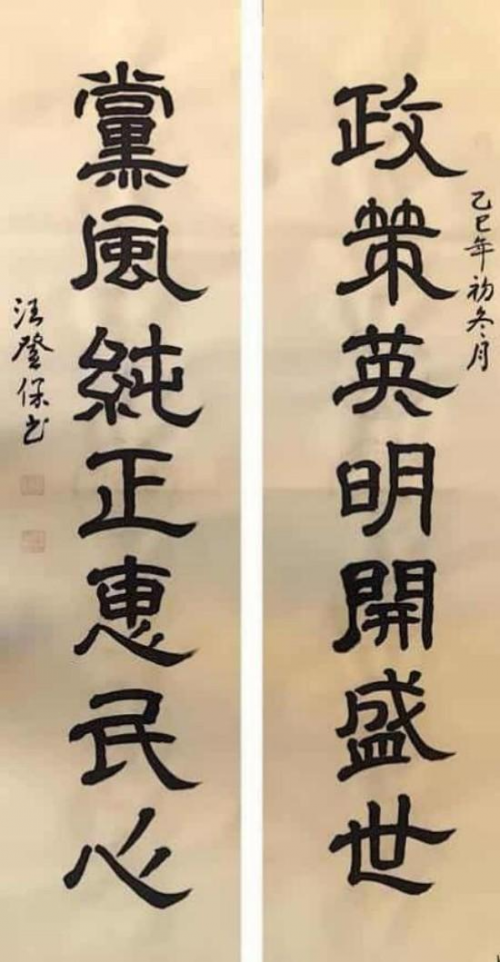 乙巳年初冬月
政策英明開盛世
黨風純正惠民心
汪登保书